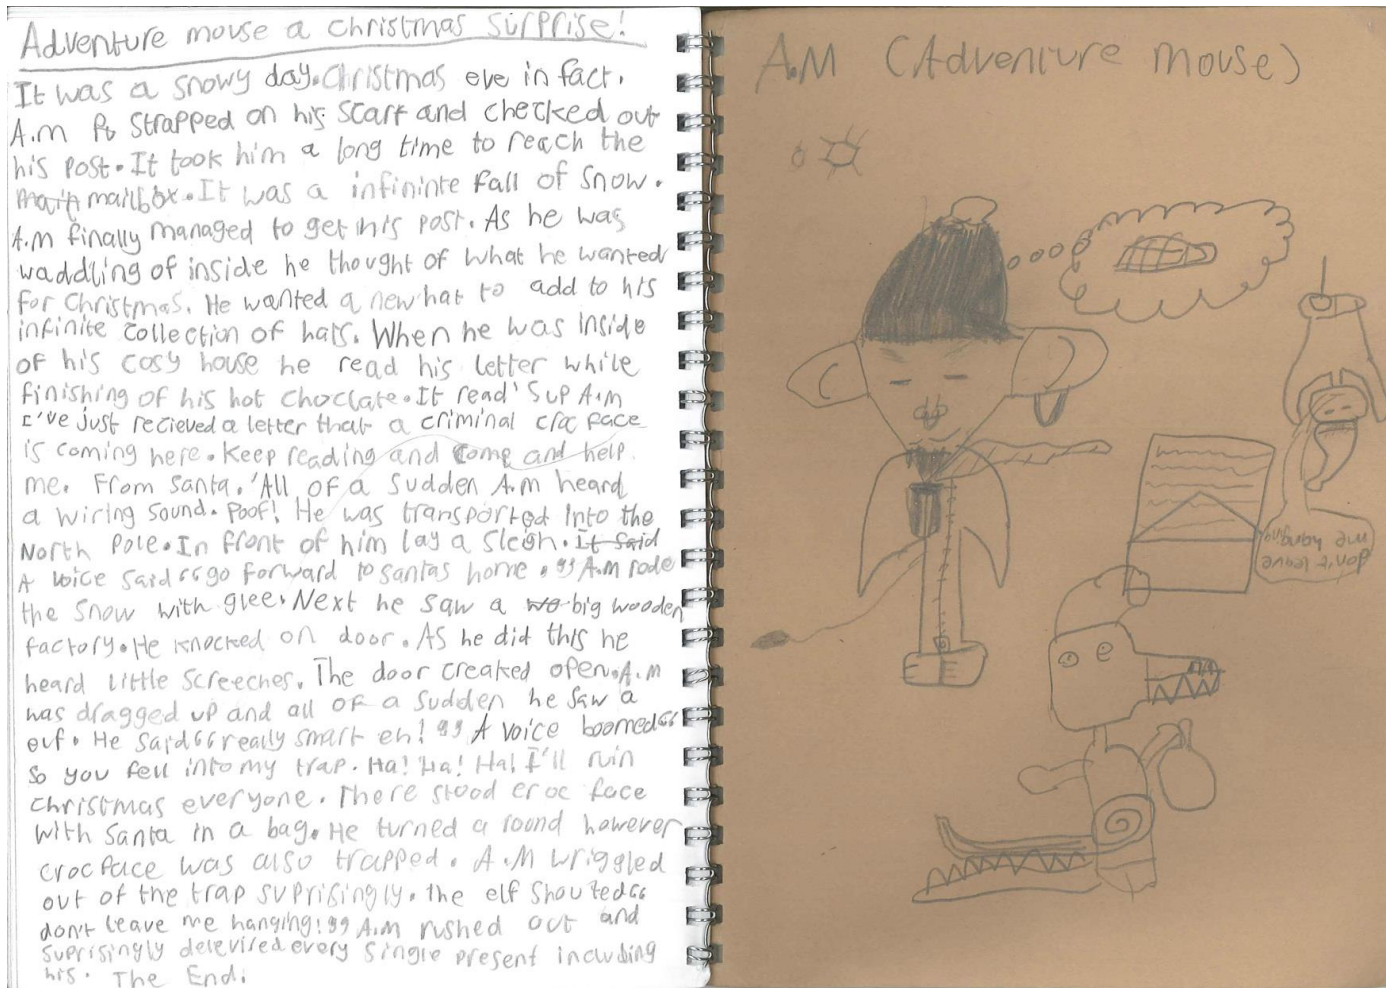 Adventure mouse a christmas surprise!
It was a snowy day. Christmas eve in fact.
A.m strapped on his scarf and checked out
his post. It took him a long time to reach the
mailbox. It was a infininte fall of snow.
A.m finally managed to get his post. As he was
waddling of inside he thought of what he wanted
for Christmas. He wanted a new hat to add to his
infinite collection of hats. When he was inside
of his cosy house he read his letter while
finishing of his hot choclate. It read 'Sup A.m
I've just recieved a letter that a criminal croc face
is coming here. Keep reading and come and help
me. From Santa.' All of a sudden A.m heard
a wiring sound. Poof! He was transported into the
North Pole. In front of him lay a sleigh. It said
A voice said "go forward to santas home." A.m rode
the snow with glee. Next he saw a big wooden
factory. He knocked on door. As he did this he
heard little screeches. The door creaked open. A.m
was dragged up and all of a sudden he saw a
elf. He said "really smart eh!" A voice boomed "
so you fell into my trap. Ha! Ha! Ha! I'll ruin
christmas everyone. There stood croc face
with Santa in a bag. He turned a round however
crocface was also trapped. A.M wriggled
out of the trap suprisingly. The elf shouted "
don't leave me hanging!" A.m rushed out and
suprisingly delevired every single present including
his. The End.
A.M (Adventure mouse)
don't leave
me hanging